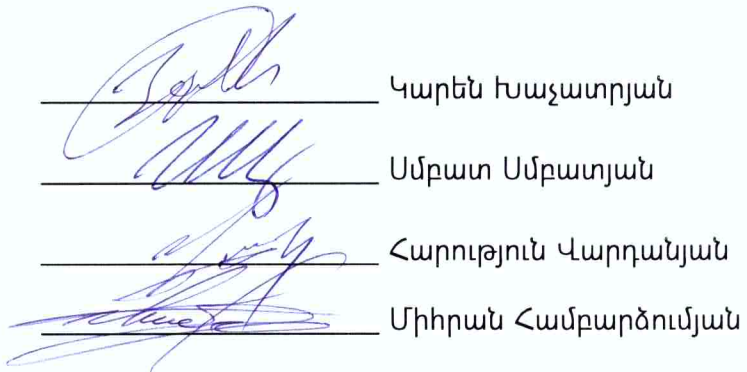 Կարեն Խաչատրյան
Սմբատ Սմբատյան
Հարություն Վարդանյան
Միհրան Համբարձումյան